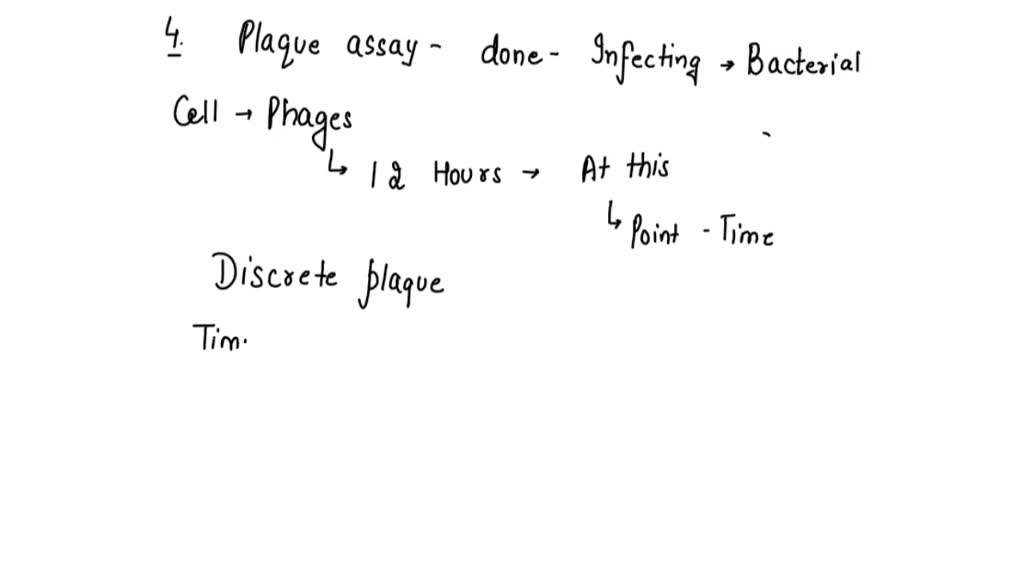 4. Plaque assay - done - Infecting → Bacterial
Cell → Phages
↳ 12 Hours → At this
↳ Point - Time
Discrete plaque
Tim.